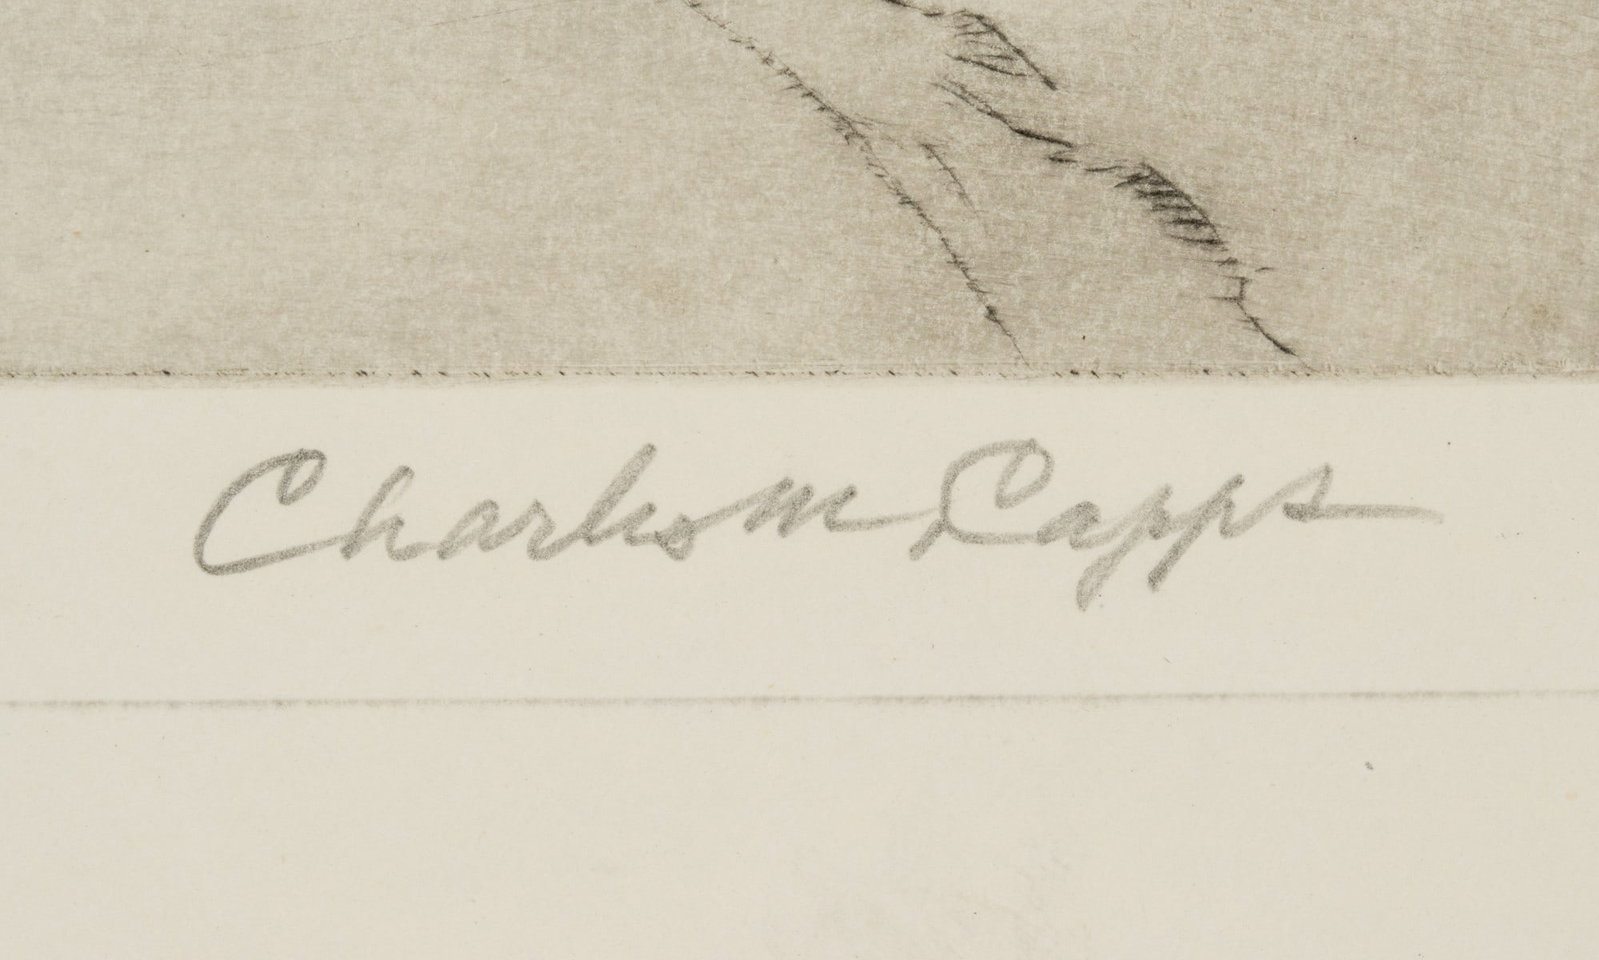 Charles M Capps